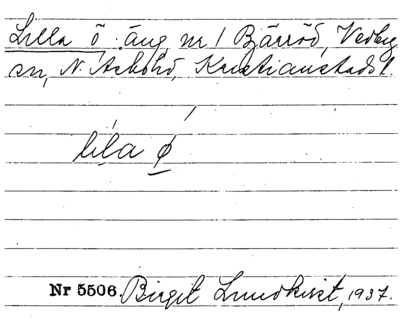 Lilla ö : äng nr 1 Bjärröd, Vedby
sn, N. Åsbohd, Kristianstads l.
lila ø
Nr 5506. Birgit Lundkvist, 1937.